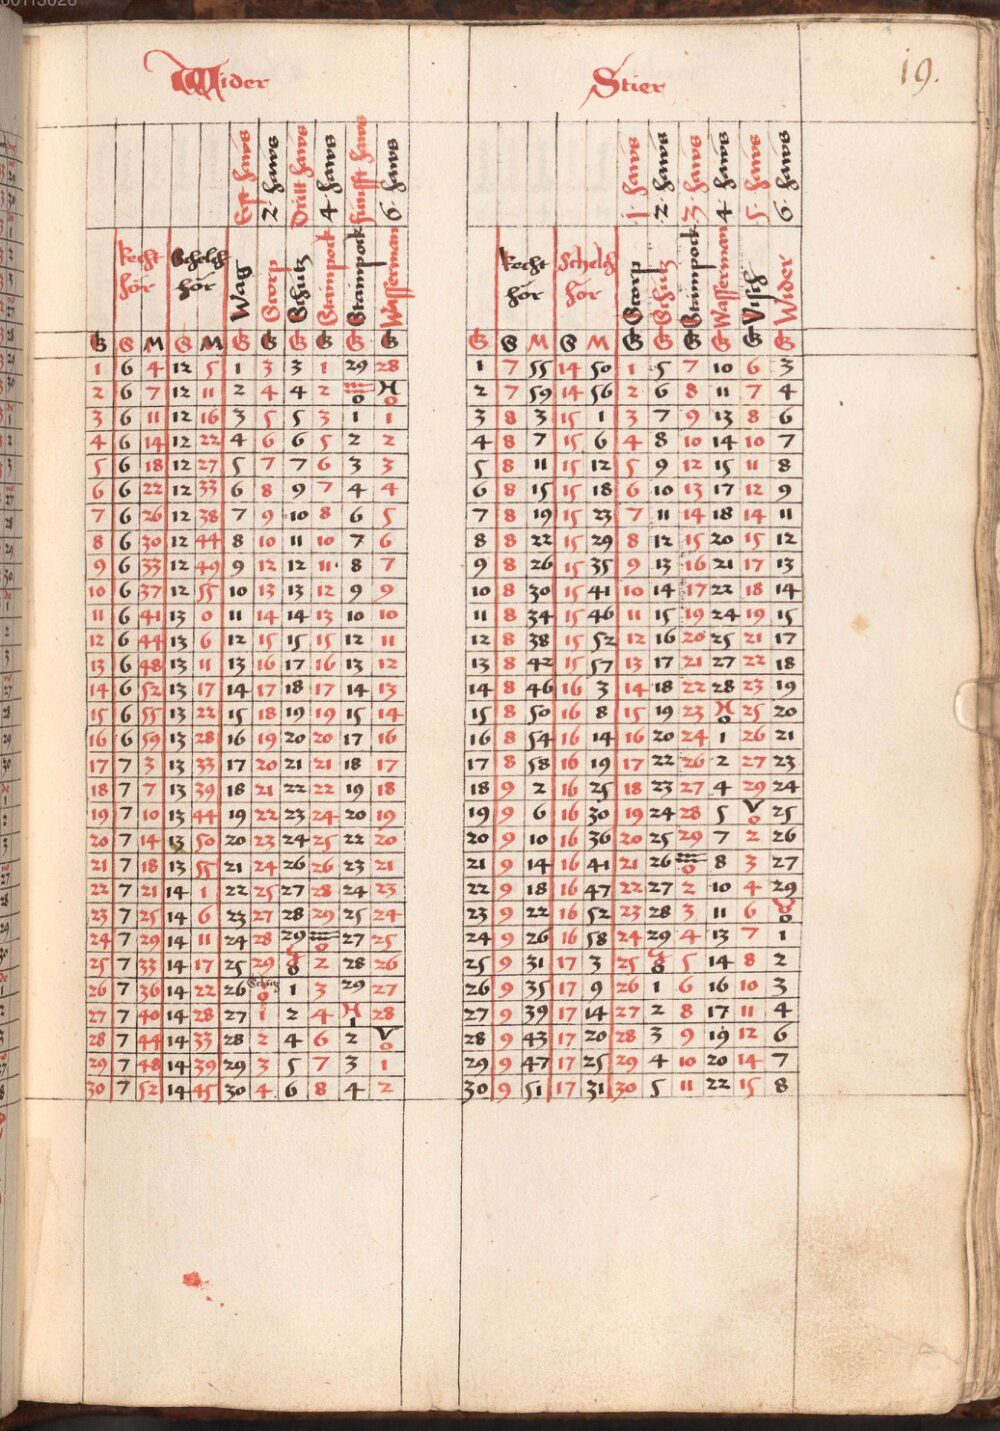 19.
Wider
Erst haws 2 haws Dritt haws 4 haws funfft haws 6 haws
Recht hor Schelch hor Wag Scorp Schutz Stainpock Stainpock Wasserman
G S M S M G G G G G G
1 6 4 12 5 1 3 3 1 29 28
2 6 7 12 11 2 4 4 2 ♒ 0 ♓ 0
3 6 11 12 16 3 5 5 3 1 1
4 6 14 12 22 4 6 6 5 2 2
5 6 18 12 27 5 7 7 6 3 3
6 6 22 12 33 6 8 9 7 4 4
7 6 26 12 38 7 9 10 8 6 5
8 6 30 12 44 8 10 11 10 7 6
9 6 33 12 49 9 12 12 11 8 7
10 6 37 12 55 10 13 13 12 9 9
11 6 41 13 0 11 14 14 13 10 10
12 6 44 13 6 12 15 15 15 12 11
13 6 48 13 11 13 16 17 16 13 12
14 6 52 13 17 14 17 18 17 14 13
15 6 55 13 22 15 18 19 19 15 14
16 6 59 13 28 16 19 20 20 17 16
17 7 3 13 33 17 20 21 21 18 17
18 7 7 13 39 18 21 22 22 19 18
19 7 10 13 44 19 22 23 24 20 19
20 7 14 13 50 20 23 24 25 22 20
21 7 18 13 55 21 24 26 26 23 21
22 7 21 14 1 22 25 27 28 24 23
23 7 25 14 6 23 27 28 29 25 24
24 7 29 14 11 24 28 29 ♒ 0 27 25
25 7 33 14 17 25 29 ♑ 0 2 28 26
26 7 36 14 22 26 Schutz 0 1 3 29 27
27 7 40 14 28 27 1 2 4 ♓ 1 28
28 7 44 14 33 28 2 4 6 2 ♈ 0
29 7 48 14 39 29 3 5 7 3 1
30 7 52 14 45 30 4 6 8 4 2
Stier
1 haws 2 haws 3 haws 4 haws 5 haws 6 haws
Recht hor Schelch hor Scorp Schutz Stainpock Wasserman Visch Wider
G S M S M G G G G G G
1 7 55 14 50 1 5 7 10 6 3
2 7 59 14 56 2 6 8 11 7 4
3 8 3 15 1 3 7 9 13 8 6
4 8 7 15 6 4 8 10 14 10 7
5 8 11 15 12 5 9 12 15 11 8
6 8 15 15 18 6 10 13 17 12 9
7 8 19 15 23 7 11 14 18 14 11
8 8 22 15 29 8 12 15 20 15 12
9 8 26 15 35 9 13 16 21 17 13
10 8 30 15 41 10 14 17 22 18 14
11 8 34 15 46 11 15 19 24 19 15
12 8 38 15 52 12 16 20 25 21 17
13 8 42 15 57 13 17 21 27 22 18
14 8 46 16 3 14 18 22 28 23 19
15 8 50 16 8 15 19 23 ♓ 0 25 20
16 8 54 16 14 16 20 24 1 26 21
17 8 58 16 19 17 22 26 2 27 23
18 9 2 16 25 18 23 27 4 29 24
19 9 6 16 30 19 24 28 5 ♈ 0 25
20 9 10 16 36 20 25 29 7 2 26
21 9 14 16 41 21 26 ♒ 0 8 3 27
22 9 18 16 47 22 27 2 10 4 29
23 9 22 16 52 23 28 3 11 6 ♉ 0
24 9 26 16 58 24 29 4 13 7 1
25 9 31 17 3 25 ♑ 0 5 14 8 2
26 9 35 17 9 26 1 6 16 10 3
27 9 39 17 14 27 2 8 17 11 4
28 9 43 17 20 28 3 9 19 12 6
29 9 47 17 25 29 4 10 20 14 7
30 9 51 17 31 30 5 11 22 15 8